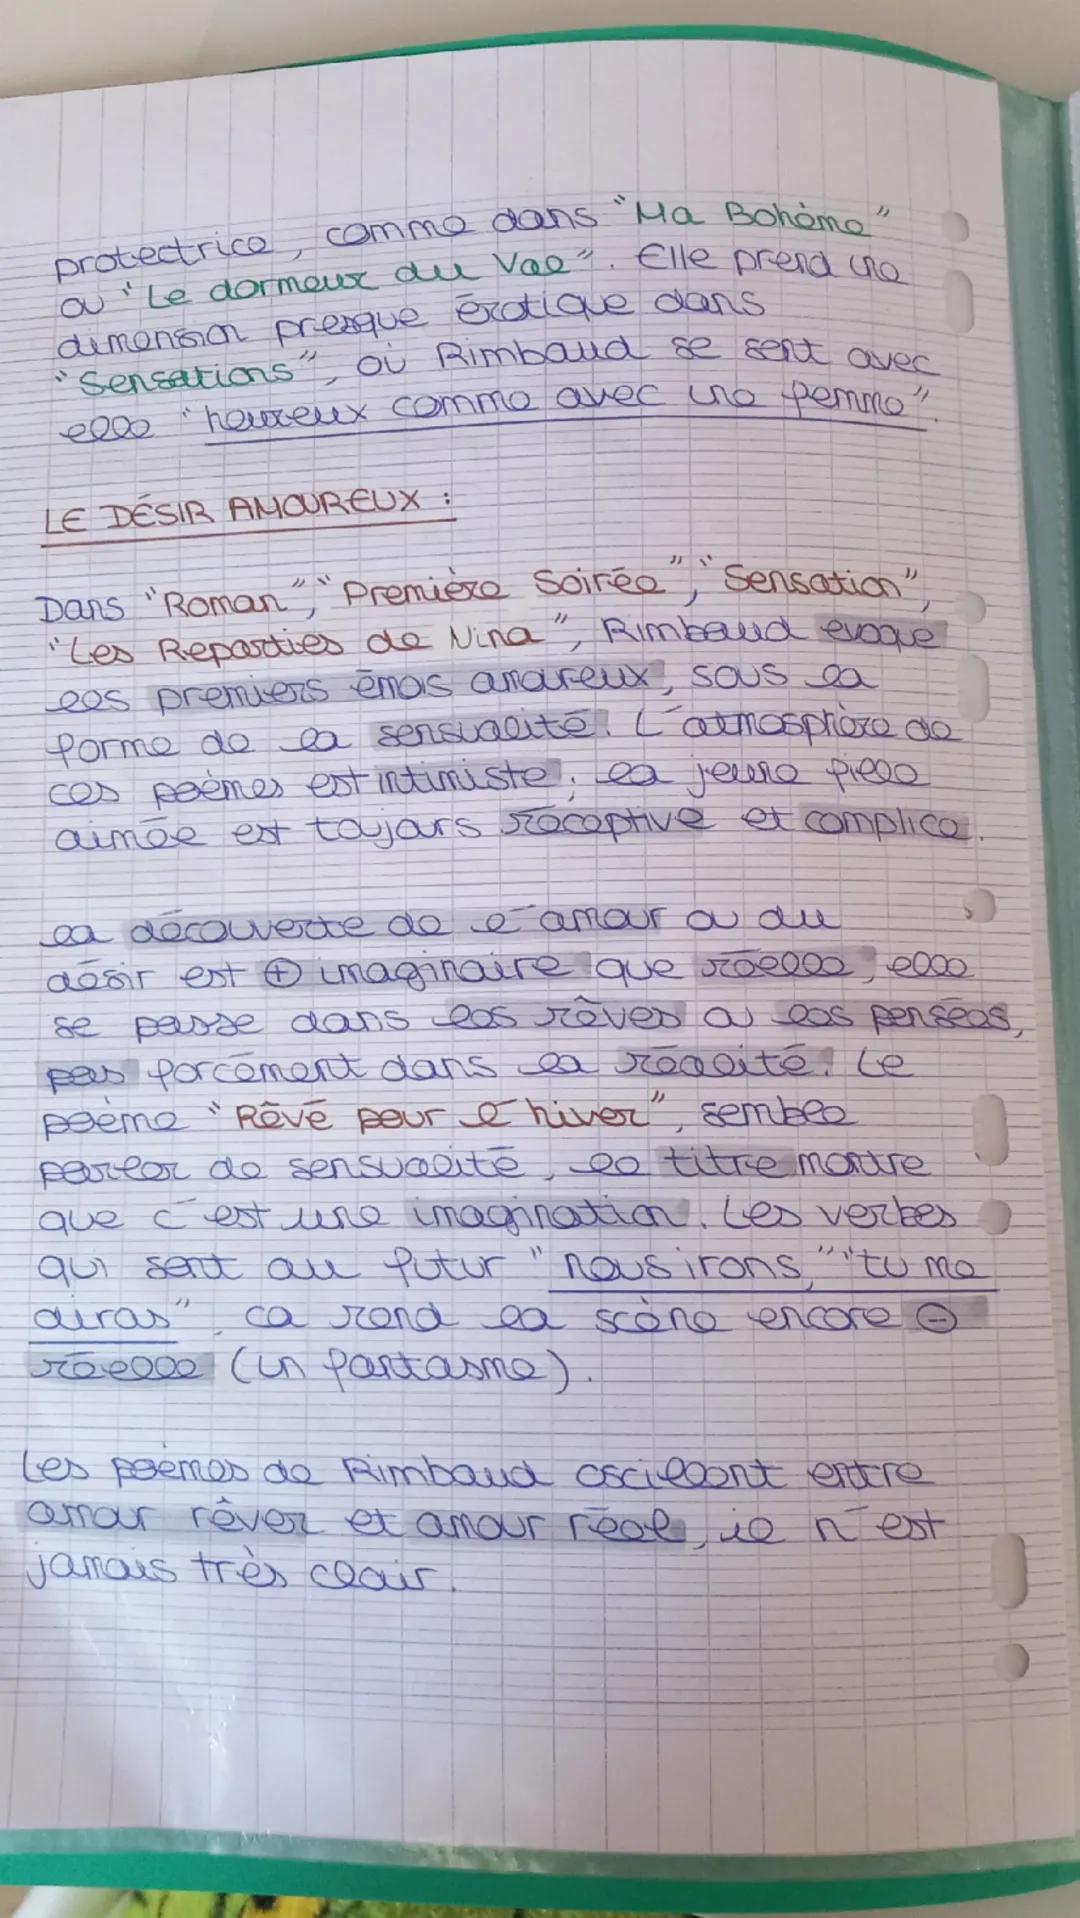 protectrice, comme dans "Ma Bohème"
ou "Le dormeur du Val". Elle prend une
dimension presque érotique dans
"Sensations", où Rimbaud se sent avec
elle "heureux comme avec une femme".
LE DÉSIR AMOUREUX :
Dans "Roman", "Première Soirée", "Sensation",
"Les Reparties de Nina", Rimbaud evoque
les premiers émois amoureux, sous la
forme de la sensualité. L'atmosphère de
ces poèmes est intimiste, la jeune fille
aimée est toujours réceptive et complice.
la découverte de l'amour ou du
désir est ⊕ imaginaire que réelle, elle
se passe dans les rêves ou les pensées,
pas forcément dans la réalité. Le
poème "Rêvé pour l'hiver", semble
parler de sensualité, le titre montre
que c'est une imagination. Les verbes
qui sont au futur "nous irons," "tu me
diras", ca rend la scène encore ⊖
réelle (un fantasme).
Les poèmes de Rimbaud oscillent entre
amour rêver et amour réel, ie n'est
jamais très clair.